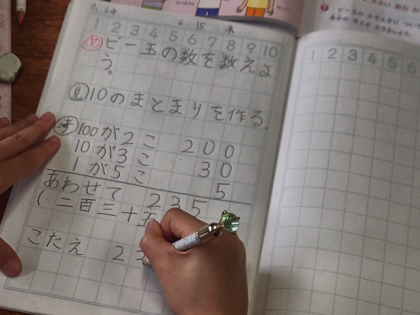 1 2 3 4 5 6 7 8 9 10
め ビー玉の数を数えよ
う。
10のまとまりを作る.
100が2こ 200
10が3こ 30
1が5こ 5
あわせて 235
(二百三十五
こたえ 23